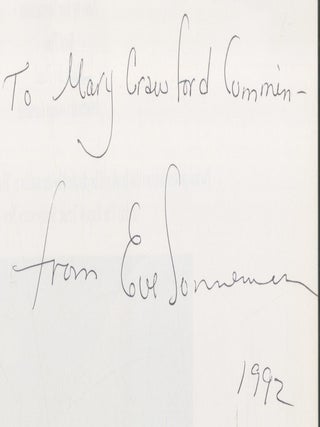 To Mary Crawford Cummin-
from Eve Sonneman
1992